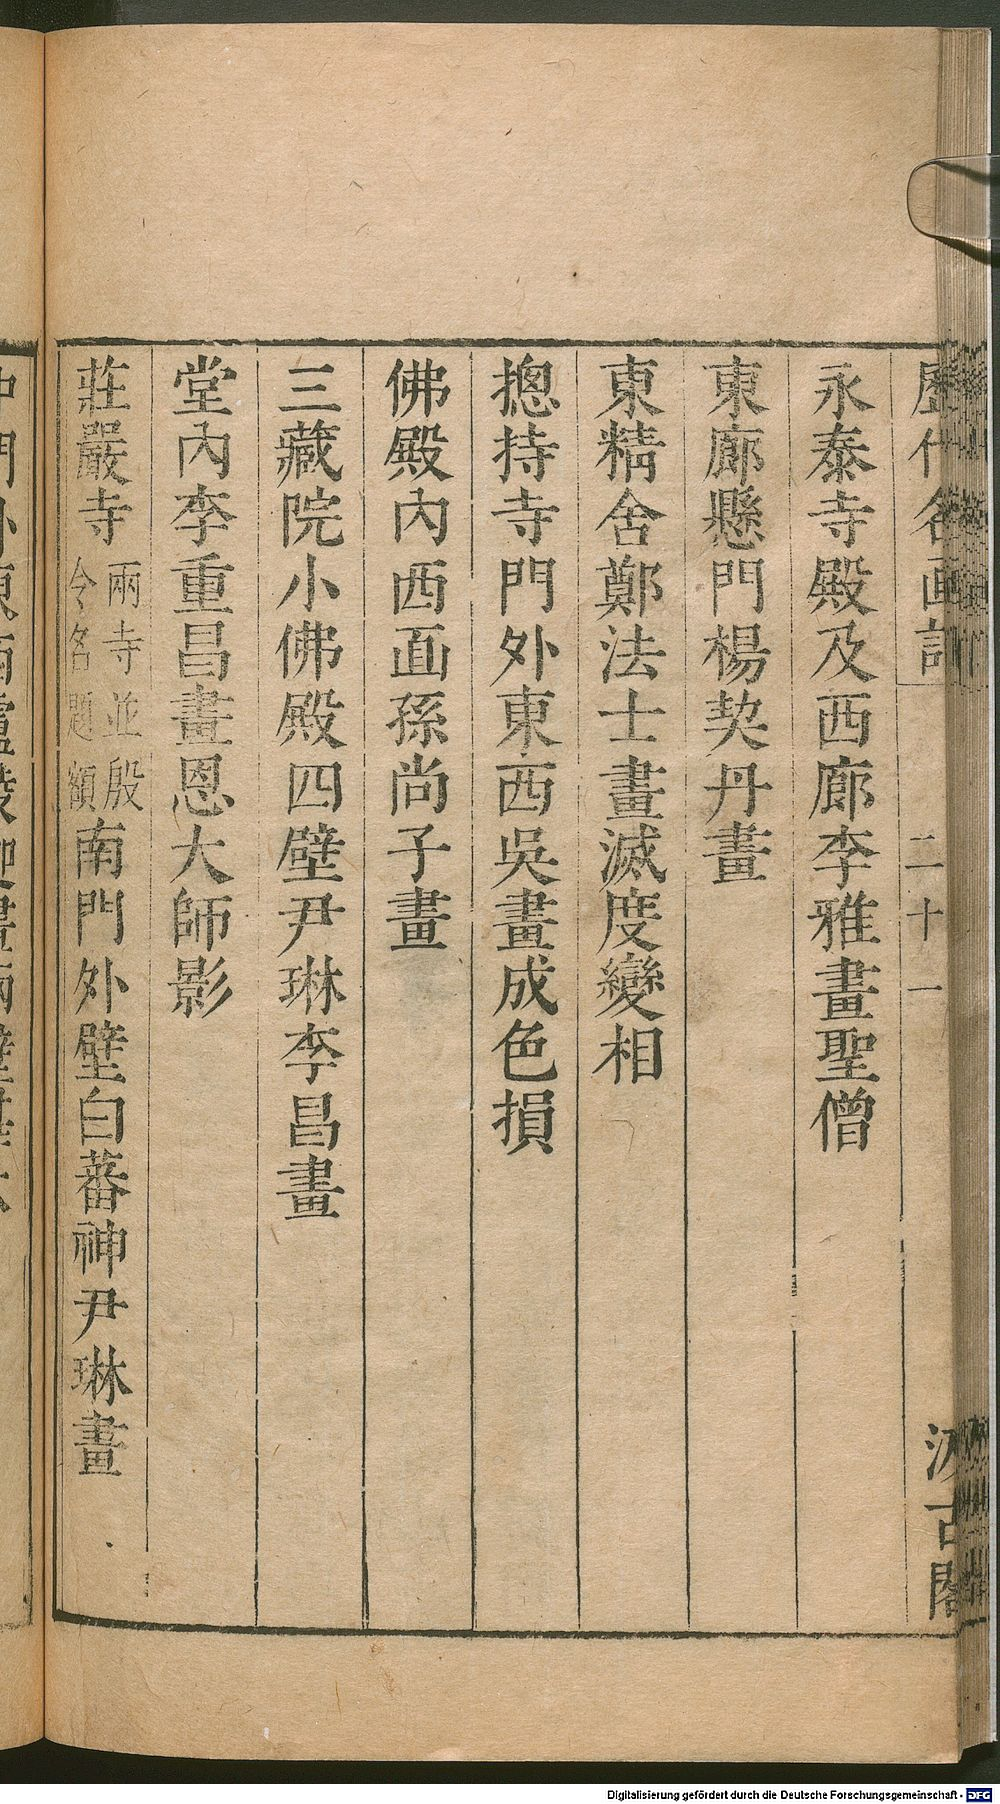 歷代名画記 二十一 汲古閣
永泰寺殿及西廊李雅畫聖僧
東廊懸門楊契丹畫
東精舍鄭法士畫滅度變相
摠持寺門外東西吳畫成色損
佛殿內西面孫尚子畫
三藏院小佛殿四壁尹琳李昌畫
堂內李重昌畫恩大師影
莊嚴寺兩寺並殷令名題額南門外壁白蕃神尹琳畫
Digitalisierung gefördert durch die Deutsche Forschungsgemeinschaft - DFG